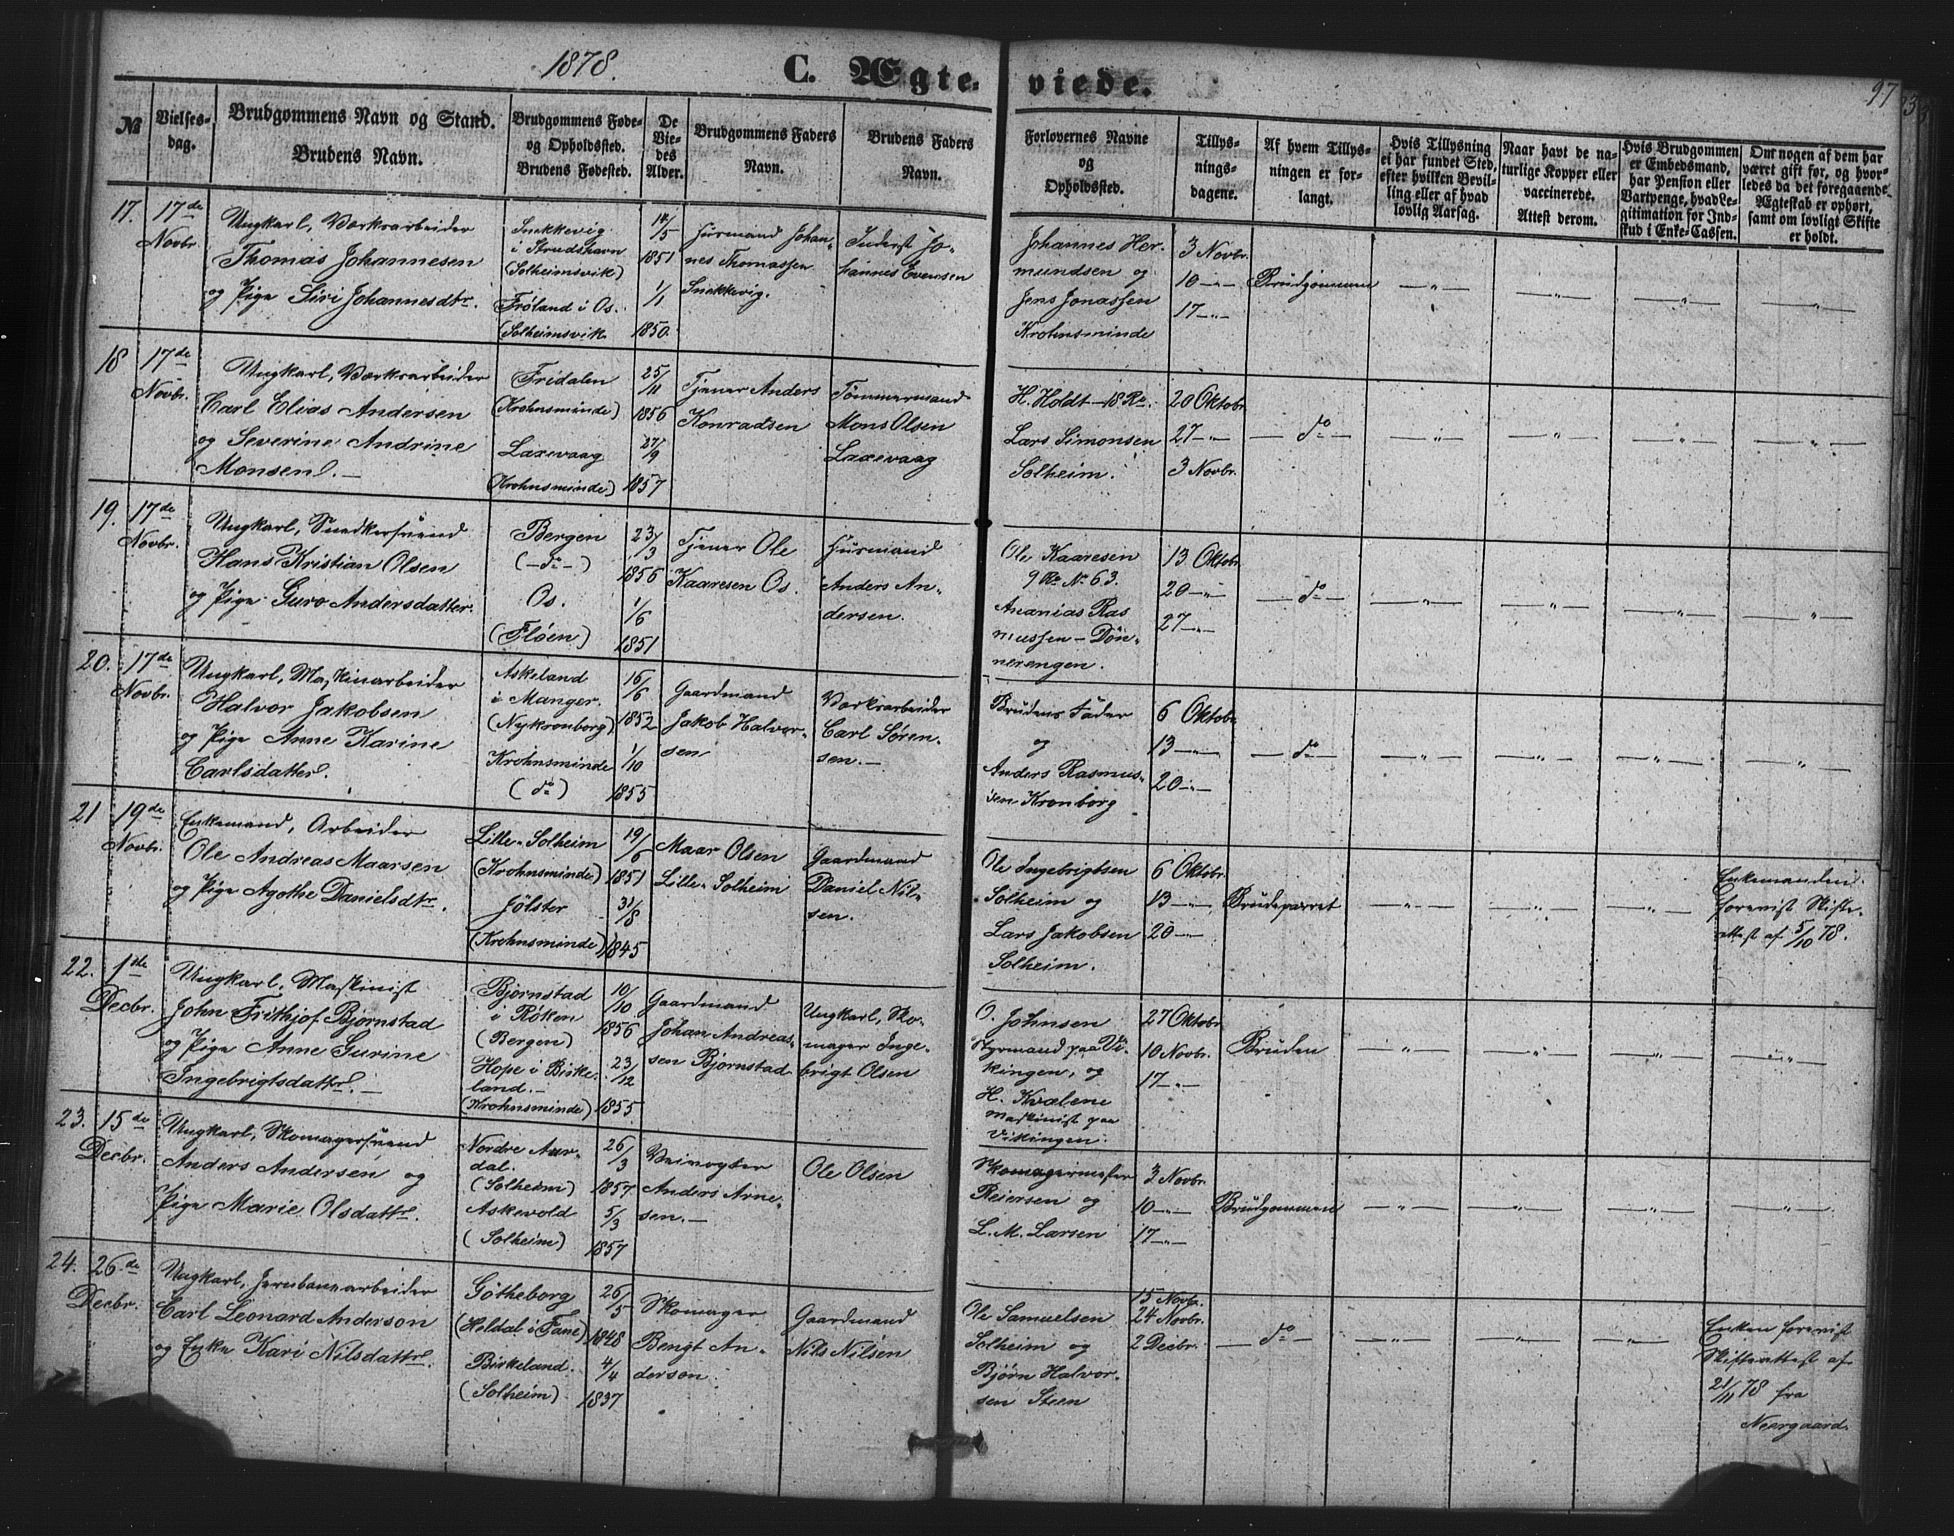 1878.
C. Ægte-viede.
97
№
Vielses-dag.
Brudgommens Navn og Stand.
Brudens Navn.
Brudgommens Føde- og Opholdssted.
Brudens Fødested.
De Viedes Alder.
Brudgommens Faders Navn.
Brudens Faders Navn.
Forlovernes Navne og Opholdssted.
Tillysningsdagene.
Af hvem Tillysningen er forlangt.
Hvis Tillysning ei har fundet Sted, efter hvilken Bevilling eller af hvad lovlig Aarsag.
Naar havt de naturlige Kopper eller vaccinerede. Attest derom.
Hvis Brudgommen er Embedsmand, har Pension eller Vartpenge, hvad Legitimation for Indskud i Enke-Cassen.
Om nogen af dem har været gift før, og hvorledes da det foregaaende Ægteskab er ophørt, samt om lovligt Skifte er holdt.
17. 17de Novbr.
Ungkarl, Værksarbeider
Thomas Johannesen
og Pige Siri Johannesdtr.
Snekkevig
i Strudshavn
(Solheimsvik)
Frøland i Os.
(Solheimsvik
14/5 1851
1/1 1850.
Husmand Johan-
nes Thomassen
Snekkevig.
Inderst Jo-
hannes Evensen
Johannes Her-
mundsen og
Jens Jonassen
Krohnsminde
3 Novbr.
10 —"—
17 —"—
Brudgommen
18 17de Novbr.
Ungkarl, Værksarbeider
Carl Elias Andersen
og Severine Andrine
Monsen. —
Fridalen
(Krohnsminde)
Laxevaag
(Krohnsminde)
25/11 1856
27/9 1857
Tjener Anders
Konradsen
Tømmermand
Mons Olsen
Laxevaag
H. Holdt - 18 Ro.
Lars Simonsen
Solheim.
20 Oktobr.
27 —"—
3 Novbr.
— do —
19. 17de Novbr.
Ungkarl, Snedkersvend
Hans Kristian Olsen
og Pige Guro Andersdatter.
Bergen
(— do —)
Os.
(Fløen)
23/3 1856
1/6 1851
Tjener Ole
Kaaresen Os.
Husmand
Anders An-
dersen.
Ole Kaaresen
9 Ro No 63.
Ananias Ras
mussen — Døn-
nerengen.
13 Oktobr.
20 —"—
27 —"—
— do —
20. 17de Novbr.
Ungkarl, Maskinarbeider
Halvor Jakobsen
og Pige Anne Karine
Carlsdatter.
Askeland
i Manger.
(Nykronborg)
Krohnsminde
(do)
16/6 1852
1/10 1855
Gaardmand
Jakob Halvor-
sen
Værksarbeider
Carl Søren-
sen. —
Brudens Fader
og
Anders Rasmus-
sen Kronborg
6 Oktobr.
13 —"—
20 —"—
— do —
21 19de Novbr.
Enkemand, Arbeider
Ole Andreas Maarsen
og Pige Agothe Danielsdtr.
Lille-Solheim
(Krohnsminde)
Jølster
(Krohnsminde)
19/6 1851
31/8 1845
Maar Olsen
Lille-Solheim
Gaardmand
Daniel Nil-
sen.
Ole Ingebrigtsen
Solheim og
Lars Jakobsen
Solheim.
6 Oktobr.
13 —"—
20 —"—
Brudeparret
Enkemanden
forevist Skifte-
attest af 5/10 78.
22. 1ste Decbr.
Ungkarl, Maskinist
John Frithjof Bjørnstad
og Pige Anne Gurine
Ingebrigtsdattr. —
Bjørnstad
i Røken
(Bergen)
Hope i Birke-
land. —
(Krohnsminde)
10/10 1856
23/12 1855
Gaardmand
Johan Andreas-
sen Bjørnstad
Ungkarl, Sko-
mager Inge-
brigt Olsen
O. Johnsen
Styrmand paa Vi-
kingen, og
H. Kvalene
maskinist paa
Vikingen.
27 Oktobr.
10 Novbr.
17 —"—
Bruden
23. 15de Decbr.
Ungkarl, Skomagersvend
Anders Andersen og
Pige Marie Olsdattr.
Nordre Aur-
dal.
(Solheim)
Askevold
(Solheim)
26/3 1857
5/3 1857
Veivogter
Anders Arne-
sen. —
Ole Olsen
Skomagermester
Reiersen og
L. M. Larsen
3 Novbr.
10 —"—
17 —"—
Brudgommen
24. 26de Decbr.
Ungkarl, Jernbanearbeider
Carl Leonard Anderson
og Enke Kari Nilsdattr.
Götheborg
(Holdal i Fane)
Birkeland.
(Solheim)
26/5 1848
4/4 1837
Skomager
Bengt An-
derson.
Gaardmand
Nils Nilsen
Ole Samuelsen
Solheim og
Bjørn Halvor-
sen Steen
15 Novbr.
24 Novbr.
2 Decbr.
— do —
Enken forevist
Skifteattest af
21/11 78 fra
Neergaard.